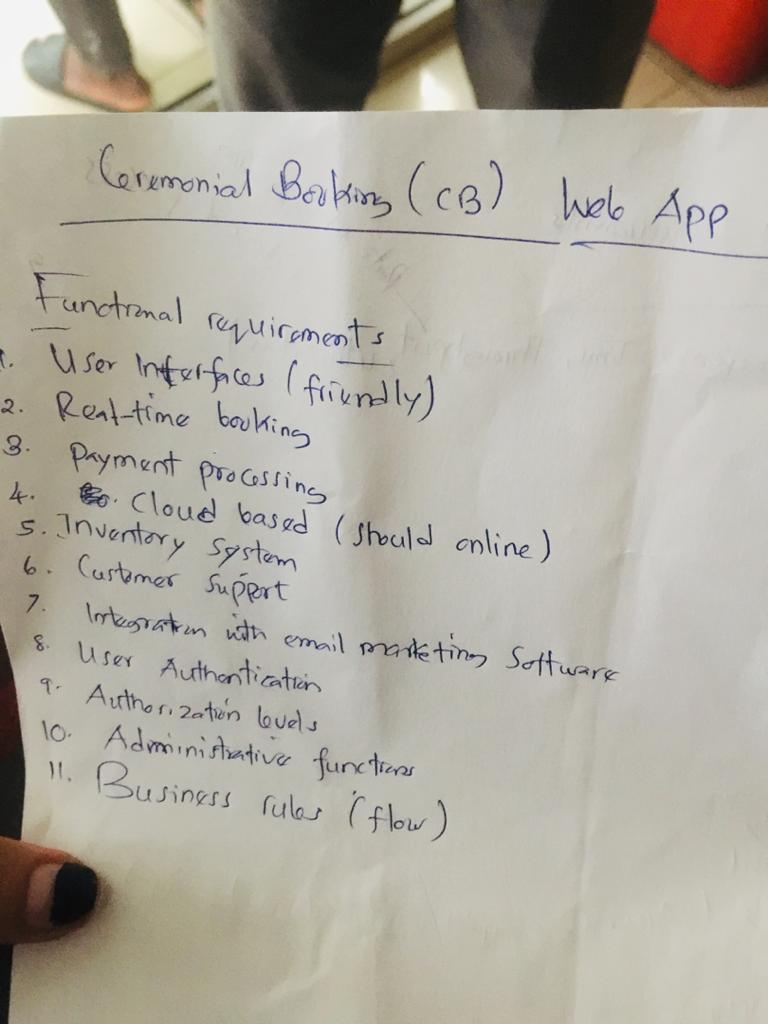 Ceremonial Booking (CB) Web App
Functional requirements
1. User Interfaces (friendly)
2. Real-time booking
3. Payment processing
4. Cloud based (should online)
5. Inventory system
6. Customer Support
7. Integration with email marketing Software
8. User Authentication
9. Authorization levels
10. Administrative functions
11. Business rules (flow)